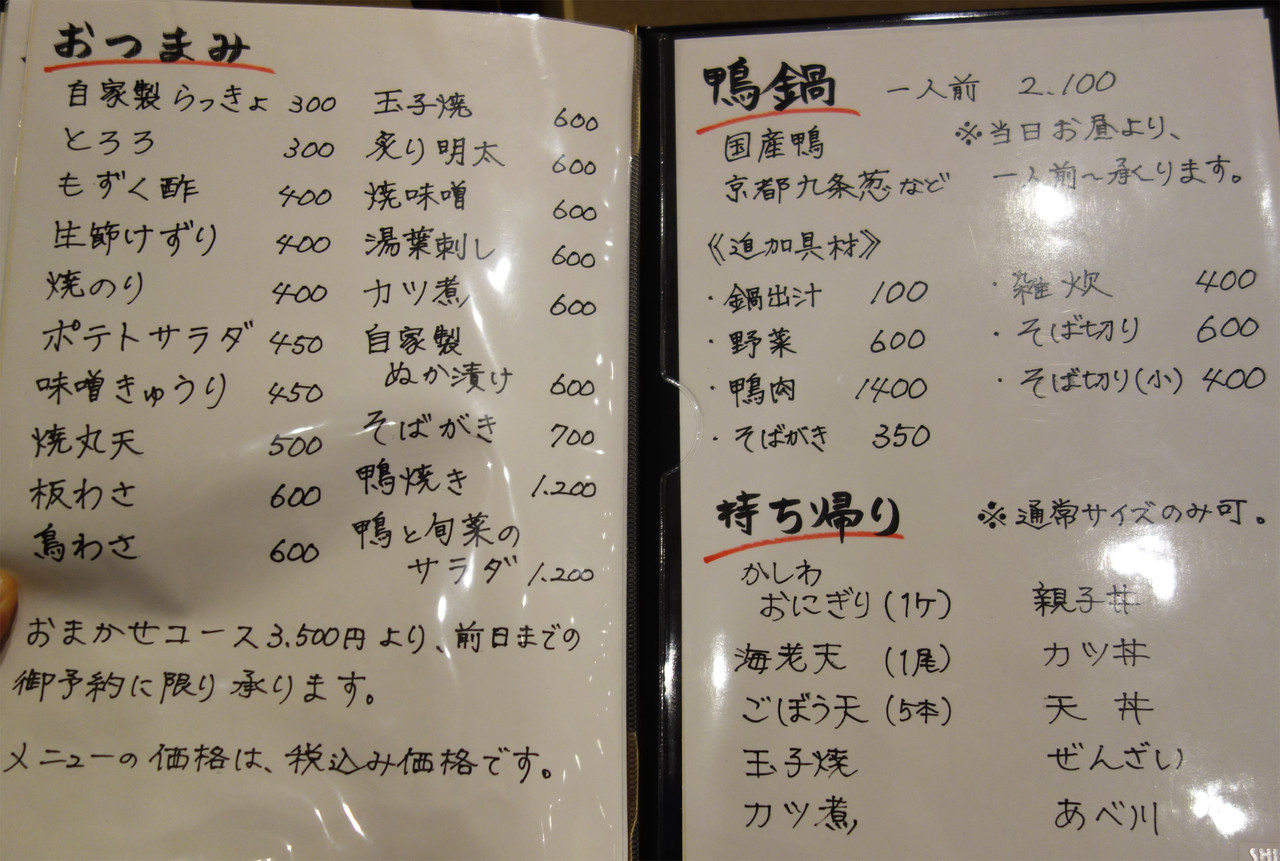 おつまみ
自家製らっきょ 300
とろろ 300
もずく酢 400
生節けずり 400
焼のり 400
ポテトサラダ 450
味噌きゅうり 450
焼丸天 500
板わさ 600
鳥わさ 600
玉子焼 600
炙り明太 600
焼味噌 600
湯葉刺し 600
カツ煮 600
自家製
ぬか漬け 600
そばがき 700
鴨焼き 1.200
鴨と旬菜の
サラダ 1.200
おまかせコース3.500円より、前日までの
御予約に限り承ります。
メニューの価格は、税込み価格です。
鴨鍋 一人前 2.100
国産鴨
京都九条葱など
※当日お昼より、
一人前〜承ります。
《追加具材》
・鍋出汁 100
・野菜 600
・鴨肉 1400
・そばがき 350
・雑炊 400
・そば切り 600
・そば切り(小) 400
持ち帰り ※通常サイズのみ可。
かしわ
おにぎり(1ケ)
海老天 (1尾)
ごぼう天 (5本)
玉子焼
カツ煮
親子丼
カツ丼
天丼
ぜんざい
あべ川
SHI